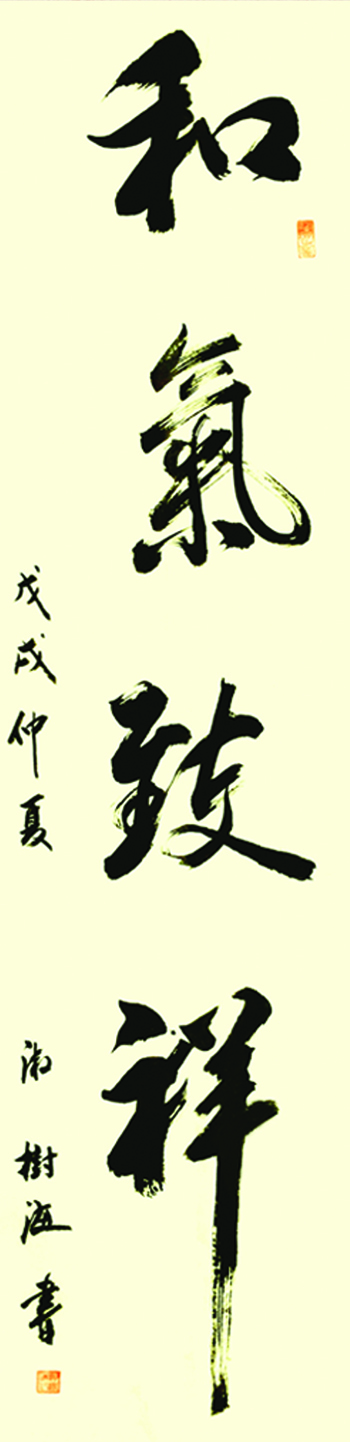 和氣致祥
戊戌仲夏
樹海書